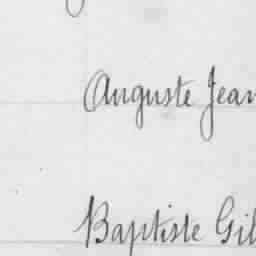 Auguste Jean
Baptiste Gil